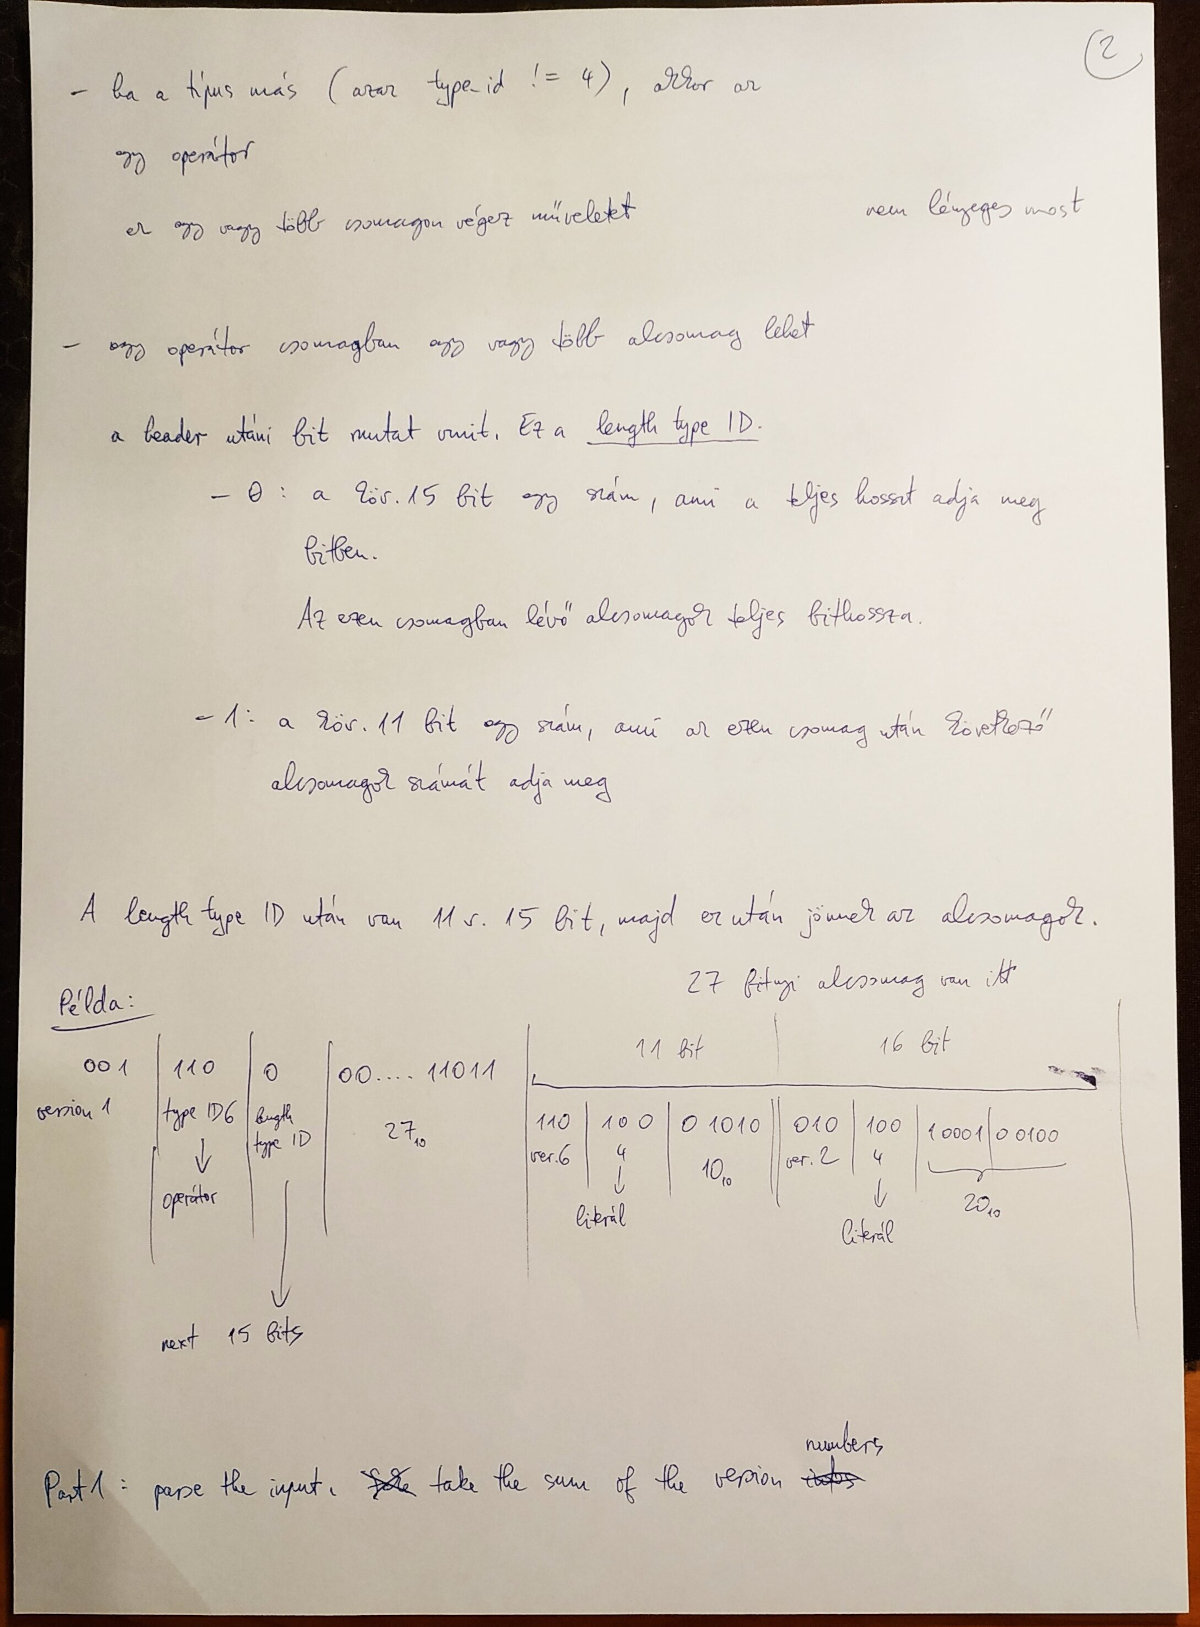 2
- ha a típus más (azaz type_id != 4), akkor az
egy operátor
ez egy vagy több csomagon végez műveletet nem lényeges most
- egy operátor csomagban egy vagy több alcsomag lehet
a header utáni bit mutat vmit. Ez a length type ID.
- 0: a köv. 15 bit egy szám, ami a teljes hosszt adja meg
bitben.
Az ezen csomagban lévő alcsomagok teljes bithossza.
- 1: a köv. 11 bit egy szám, ami az ezen csomag után következő
alcsomagok számát adja meg
A length type ID után van 11 v. 15 bit, majd ez után jönnek az alcsomagok.
27 bitnyi alcsomag van itt
Példa:
11 bit 16 bit
001 110 0 00.... 11011
version 1 type ID 6 length type ID 27₁₀
operátor
next 15 bits
110 100 0 1010 010 100 1 0001 0 0100
ver. 6 4 10₁₀ ver. 2 4 20₁₀
literál literál
numbers
Part 1: parse the input, take the sum of the version